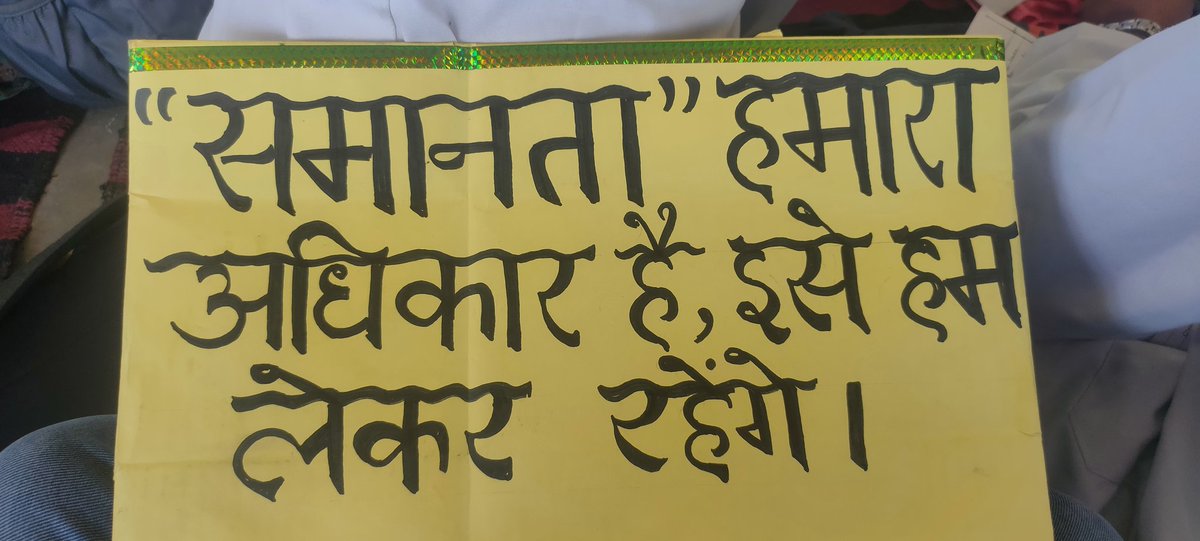 “समानता” हमारा
अधिकार है, इसे हम
लेकर रहेंगे।